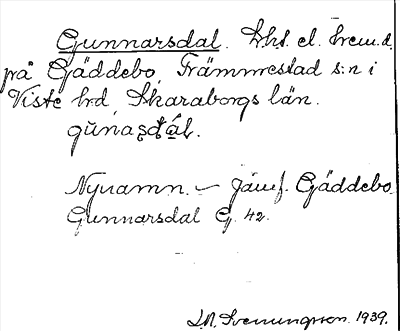 Gunnarsdal. Lht. el.
på Gäddebo, Främmestad s:n i
Viste hrd, Skaraborgs län.
Nynamn. – Jämf. Gäddebo
Gunnarsdal G. 42.
1939.